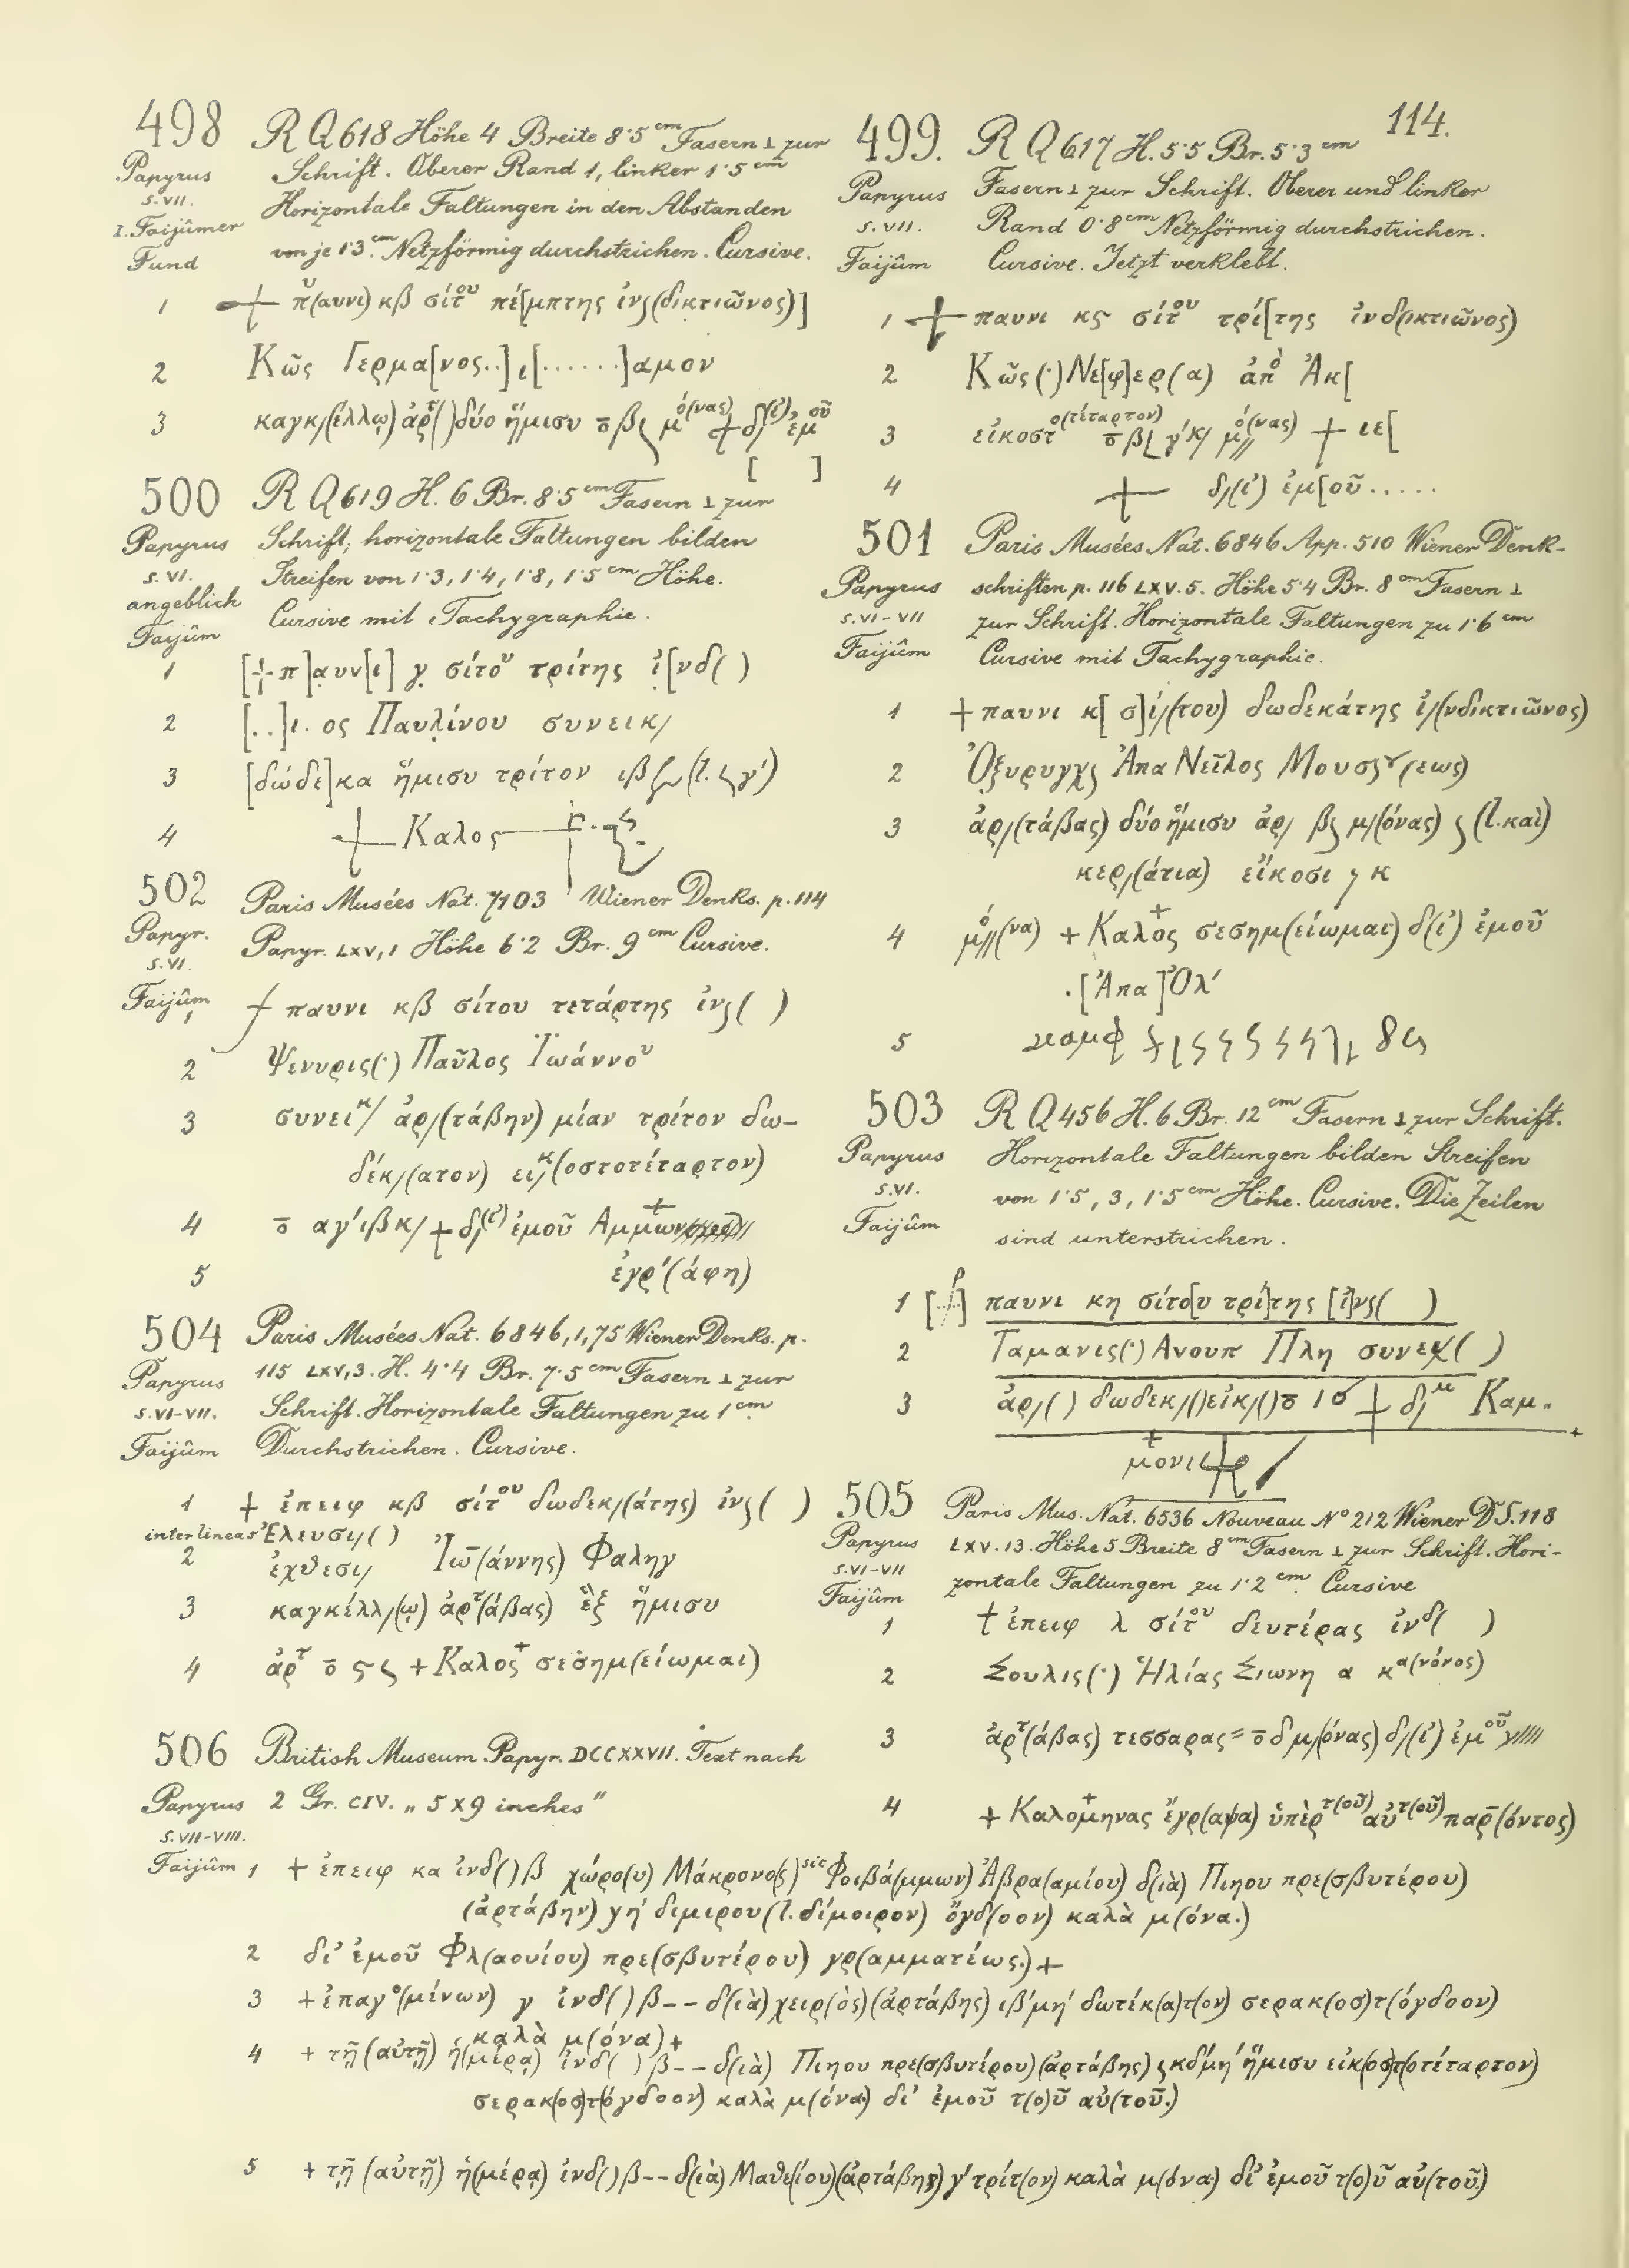 114.
498 R Q 618 Höhe 4 Breite 8·5 cm Fasern ⊥ zur
Papyrus Schrift. Oberer Rand 1, linker 1·5 cm
s. VII. Horizontale Faltungen in den Abstanden
I. Faijûmer
Fund von je 1·3 cm. Netzförmig durchstrichen. Cursive.
1 + π̔(αυνι) κβ σίτου πέ[μπτης ἰνς(δικτιῶνος)]
2 Κῶς Γερμα[νος..],ι[......]αμον
3 καγκ/(έλλῳ) ἀρτ( ) δύο ἥμισυ ο̄ βς μό(νας) + δ/(ί) ἐμοῦ
[ ]
499. R Q 617 H. 5·5 Br. 5·3 cm
Papyrus Fasern ⊥ zur Schrift. Oberer und linker
s. VII. Rand 0·8 cm Netzförmig durchstrichen.
Faijûm Cursive. Jetzt verklebt.
1 + παυνι κς σίτου τρί[της ἰνδ(ικτιῶνος)
2 Κῶς(·) Νε[φ]ερ(α) ἀπὸ Ἀκ[
3 εἰκοστο(τέταρτον) ο̄ βς γ'κ/ μ//ό(νας) + ιε[
4 + δ/(ί) ἐμ[οῦ.....
500 R Q 619 H. 6 Br. 8·5 cm Fasern ⊥ zur
Papyrus Schrift, horizontale Faltungen bilden
s. VI. Streifen von 1·3, 1·4, 1·8, 1·5 cm Höhe.
angeblich
Faijûm Cursive mit Tachygraphie.
1 [+ π]αυν[ι] γ σίτου τρίτης ἰ[νδ( )
2 [..]ι. ος Παυλίνου συνεικ/
3 [δώδε]κα ἥμισυ τρίτον ιβς (l. ς γ')
4 + Καλος
501 Paris Musées Nat. 6846 App. 510 Wiener Denk-
Papyrus schriften p. 116 LXV. 5. Höhe 5·4 Br. 8 cm Fasern ⊥
s. VI-VII zur Schrift. Horizontale Faltungen zu 1·6 cm
Faijûm Cursive mit Tachygraphie.
1 + παυνι κ[ σ]ί/(του) δωδεκάτης ἰ/(νδικτιῶνος)
2 Ὀξυρυγχς Ἀπα Νεῖλος Μουσς(εως)
3 ἀρ/(τάβας) δύο ἥμισυ ἀρ/ βς μ/(όνας) ς (l. καὶ)
κερ/(άτια) εἴκοσι ς κ
4 μό//(να) + Καλος+ σεσημ(είωμαι) δ(ί) ἐμοῦ
.[Ἀπα]Ὀλ'
502 Paris Musées Nat. 7103 Wiener Denks. p. 114
Papyr. Papyr. LXV, 1 Höhe 6·2 Br. 9 cm Cursive.
s. VI.
Faijûm
1 + παυνι κβ σίτου τετάρτης ἰνς( )
2 Ψενυρις(·) Παῦλος Ϊωάννου
3 συνεικ/ ἀρ/(τάβην) μίαν τρίτον δω-
δέκ/(ατον) εἰκ/(οστοτέταρτον)
4 ο̄ αγ'ιβκ/ + δ/(ί) ἐμοῦ Αμμων
5 ἐγρ'(άφη)
503 R Q 456 H. 6 Br. 12 cm Fasern ⊥ zur Schrift.
Papyrus Horizontale Faltungen bilden Streifen
s. VI. von 1·5, 3, 1·5 cm Höhe. Cursive. Die Zeilen
Faijûm sind unterstrichen.
1 [⳨] παυνι κη σίτο[υ τρί]της [ἰ]νς( )
2 Ταμανις(·) Ανουπ Πλη συνεχ( )
3 ἀρ/( ) δωδεκ/( ) εἰκ/( ) ο̄ ισ + δ/μ Καμ.
+
μονις
504 Paris Musées Nat. 6846, 1, 75 Wiener Denks. p.
Papyrus 115 LXV, 3. H. 4·4 Br. 7·5 cm Fasern ⊥ zur
s. VI-VII. Schrift. Horizontale Faltungen zu 1 cm.
Faijûm Durchstrichen. Cursive.
1 + ἐπειφ κβ σίτου δωδεκ/(άτης) ἰνς( )
interlineas Ἐλευσι/( )
2 ἐχθεσι/ Ἰω̄(άννης) Φαληγ
3 καγκέλλ/(ῳ) ἀρτ(άβας) ἓξ ἥμισυ
4 ἀρτ ο̄ ϛ ς + Καλος+ σεσημ(είωμαι)
505 Paris Mus. Nat. 6536 Nouveau N° 212 Wiener D S. 118
Papyrus LXV. 13. Höhe 5 Breite 8 cm Fasern ⊥ zur Schrift. Hori-
s. VI-VII
Faijûm zontale Faltungen zu 1·2 cm. Cursive
1 + ἐπειφ λ σίτου δευτέρας ἰνδ( )
2 Σουλις(·) Ἠλίας Σιωνη α κα(νόνος)
3 ἀρτ(άβας) τεσσαρας = ο̄ δ μ/(όνας) δ/(ί) ἐμοῦ
4 + Καλομηνας ἔγρ(αψα) ὑπὲρ τ(οῦ) αὐτ(οῦ) παρ(όντος)
506 British Museum Papyr. DCCXXVII. Text nach
Papyrus 2 Gr. CIV. „5 X 9 inches"
s. VII-VIII.
Faijûm 1 + ἐπειφ κα ἰνδ( ) β χώρο(υ) Μάκρονο(ς) sic Φοιβά(μμων) Ἀβρα(αμίου) δ(ιὰ) Πιηου πρε(σβυτέρου)
(ἀρτάβην) γη' διμιρου (l. δίμοιρον) ὄγδ(οον) καλὰ μ(όνα.)
2 δι' ἐμοῦ Φλ(αουίου) πρε(σβυτέρου) γρ(αμματέως.) +
3 + ἐπαγο(μένων) γ ἰνδ( ) β-- δ(ιὰ) χειρ(ὸς) (ἀρτάβης) ιβ'μη' δωτέκ(α)τ(ον) σερακ(οσ)τ(όγδοον)
καλὰ μ(όνα) +
4 + τῇ (αὐτῇ) ἡ(μέρᾳ) ἰνδ( ) β-- δ(ιὰ) Πιηου πρε(σβυτέρου) (ἀρτάβης) ςκδ'μη' ἥμισυ εἰκ(οσ)τ(οτέταρτον)
σερακ(οσ)τ(όγδοον) καλὰ μ(όνα) δι' ἐμοῦ τ(ο)ῦ αὐ(τοῦ.)
5 + τῇ (αὐτῇ) ἡ(μέρᾳ) ἰνδ( ) β-- δ(ιὰ) Μαθε(ίου) (ἀρτάβης) γ' τρίτ(ον) καλὰ μ(όνα) δι' ἐμοῦ τ(ο)ῦ αὐ(τοῦ.)